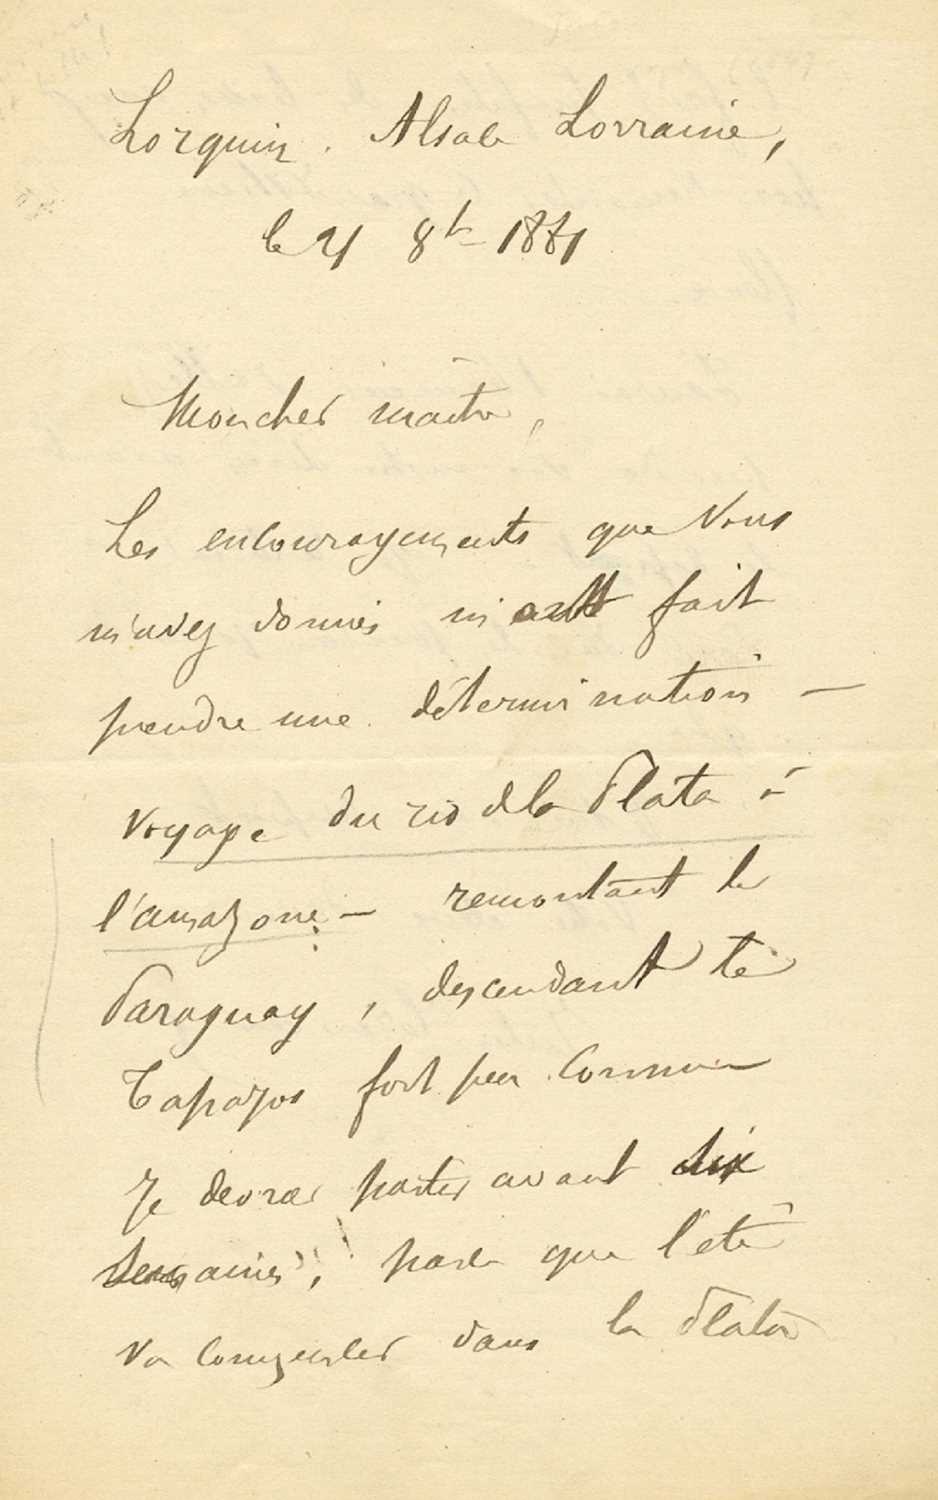 Lorquin. Alsace Lorraine,
le 21 8bre 1881
Mon cher maitre,
Les encouragements que vous
m'avez donnés m'ont fait
prendre une détermination —
voyage du rio de la Plata à
l'amazone — remontant le
Paraguay, descendant le
Tapajos fort peu connu
Je devrai partir avant six
semaines, parce que l'été
va commencer dans la Plata